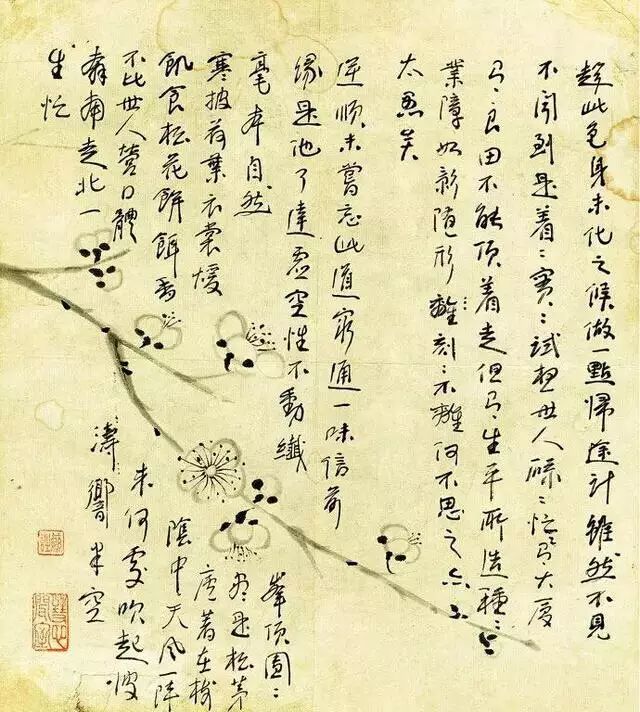 趁此色身未化之候做一點歸途計雖然不見
不聞到是着〻實〻試想世人碌〻忙〻大厦
良田不能頂着走但生平所造種〻
業障如影隨形刻〻不離何不思之
太愚矣
逆順未嘗忘此道窮通一味信前
緣是他了達虛空性不動纖
毫本自然
寒披荷葉衣裳煖
飢食松花餅餌香
不比世人營口體
奔南走北一
生忙
峯頂團〻
盡是松茅
著在
陰中天風一陣
來何處吹起波
濤響半空